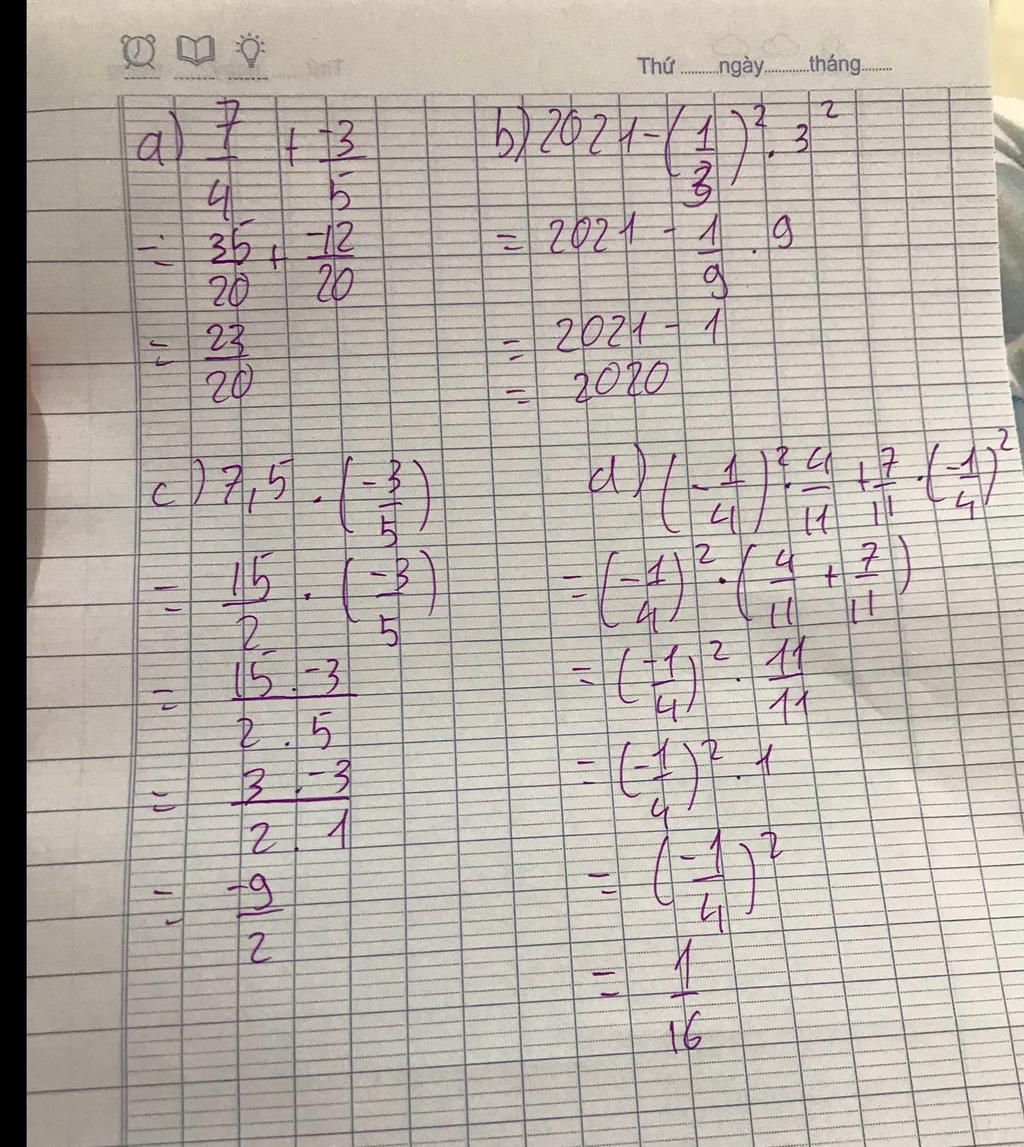 Thứ ........ngày..........tháng.......
a) 7/4 + -3/5
= 35/20 + -12/20
= 23/20
b) 2021 - (1/3)² . 3²
= 2021 - 1/9 . 9
= 2021 - 1
= 2020
c) 7,5 . (-3/5)
= 15/2 . (-3/5)
= 15 . -3 / 2 . 5
= 3 . -3 / 2 . 1
= -9/2
d) (-1/4)² . 4/11 + 7/11 . (-1/4)²
= (-1/4)² . (4/11 + 7/11)
= (-1/4)² . 11/11
= (-1/4)² . 1
= (-1/4)²
= 1/16